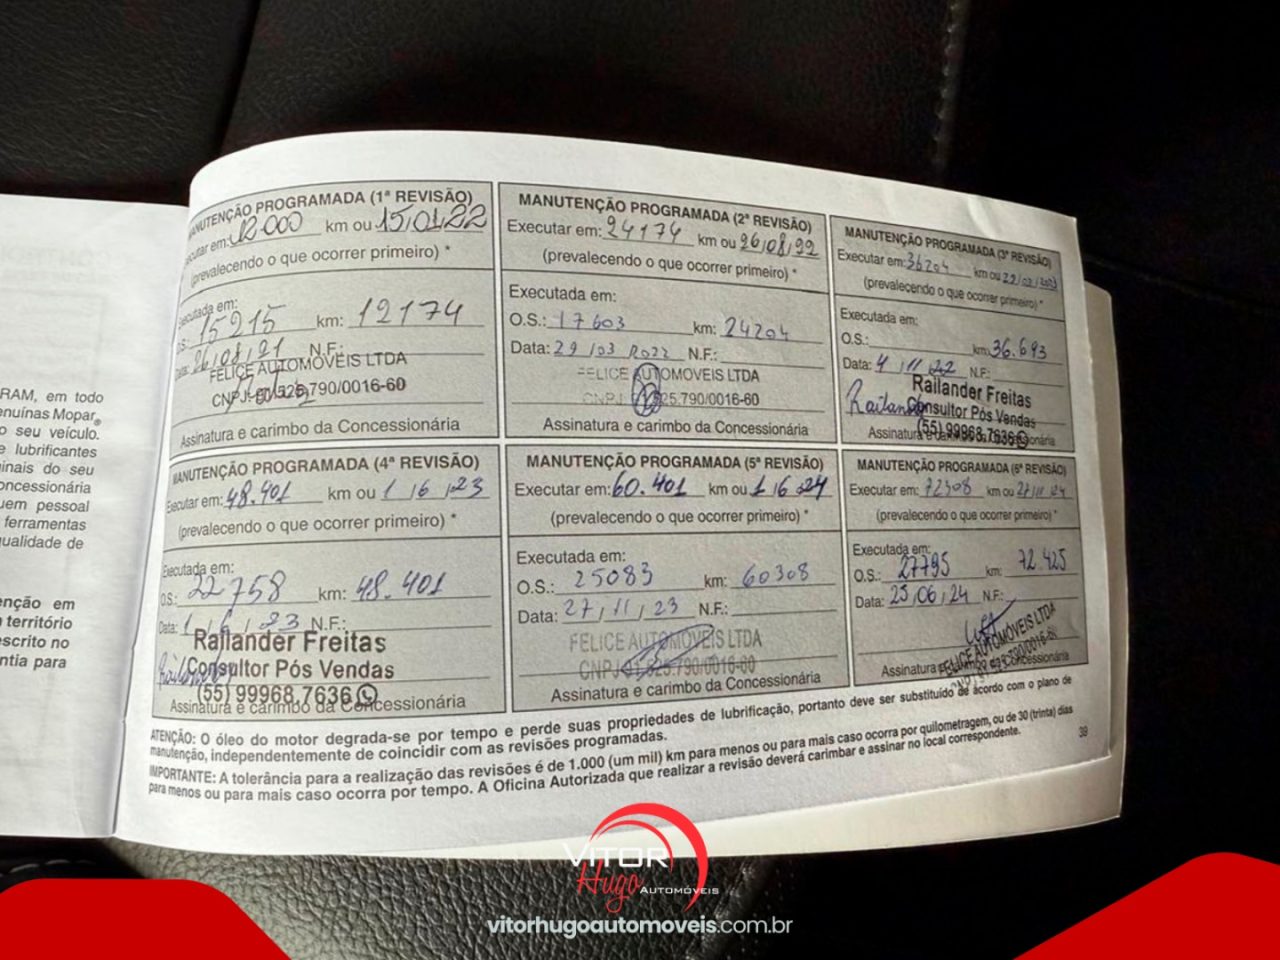 RAM, em todo
enuínas Mopar®
o seu veículo.
e lubrificantes
ginais do seu
oncessionária
uem pessoal
ferramentas
qualidade de
enção em
território
escrito no
ntia para
MANUTENÇÃO PROGRAMADA (1ª REVISÃO)
Executar em: 12.000 km ou 15/01/22
(prevalecendo o que ocorrer primeiro) *
Executada em:
O.S.: 15215 km: 12174
Data: 26/08/21 N.F.:
FELICE AUTOMÓVEIS LTDA
CNPJ 525.790/0016-60
Assinatura e carimbo da Concessionária
MANUTENÇÃO PROGRAMADA (2ª REVISÃO)
Executar em: 24174 km ou 26/08/22
(prevalecendo o que ocorrer primeiro) *
Executada em:
O.S.: 17603 km: 24204
Data: 29/03/2022 N.F.:
FELICE AUTOMOVEIS LTDA
CNPJ 525.790/0016-60
Assinatura e carimbo da Concessionária
MANUTENÇÃO PROGRAMADA (3ª REVISÃO)
Executar em: 36204 km ou
(prevalecendo o que ocorrer primeiro) *
Executada em:
O.S.: km: 36.693
Data: 4/11/22 N.F.:
Railander Freitas
Railander Consultor Pós Vendas
(55) 99968.7636
Assinatura e carimbo da Concessionária
MANUTENÇÃO PROGRAMADA (4ª REVISÃO)
Executar em: 48.401 km ou 1/6/23
(prevalecendo o que ocorrer primeiro) *
Executada em:
O.S.: 22758 km: 48.401
Data: 1/6/23 N.F.:
Railander Freitas
Railander Consultor Pós Vendas
(55) 99968.7636
Assinatura e carimbo da Concessionária
MANUTENÇÃO PROGRAMADA (5ª REVISÃO)
Executar em: 60.401 km ou 1/6/24
(prevalecendo o que ocorrer primeiro) *
Executada em:
O.S.: 25083 km: 60308
Data: 27/11/23 N.F.:
FELICE AUTOMOVEIS LTDA
CNPJ 525.790/0016-60
Assinatura e carimbo da Concessionária
MANUTENÇÃO PROGRAMADA (6ª REVISÃO)
Executar em: 72308 km ou 27/11/24
(prevalecendo o que ocorrer primeiro) *
Executada em:
O.S.: 27795 km: 72.425
Data: 25/06/24 N.F.:
FELICE AUTOMOVEIS LTDA
Assinatura e carimbo da Concessionária
ATENÇÃO: O óleo do motor degrada-se por tempo e perde suas propriedades de lubrificação, portanto deve ser substituído de acordo com o plano de
manutenção, independentemente de coincidir com as revisões programadas.
IMPORTANTE: A tolerância para a realização das revisões é de 1.000 (um mil) km para menos ou para mais caso ocorra por quilometragem, ou de 30 (trinta) dias
para menos ou para mais caso ocorra por tempo. A Oficina Autorizada que realizar a revisão deverá carimbar e assinar no local correspondente.
39
VITOR
Hugo AUTOMÓVEIS
vitorhugoautomoveis.com.br